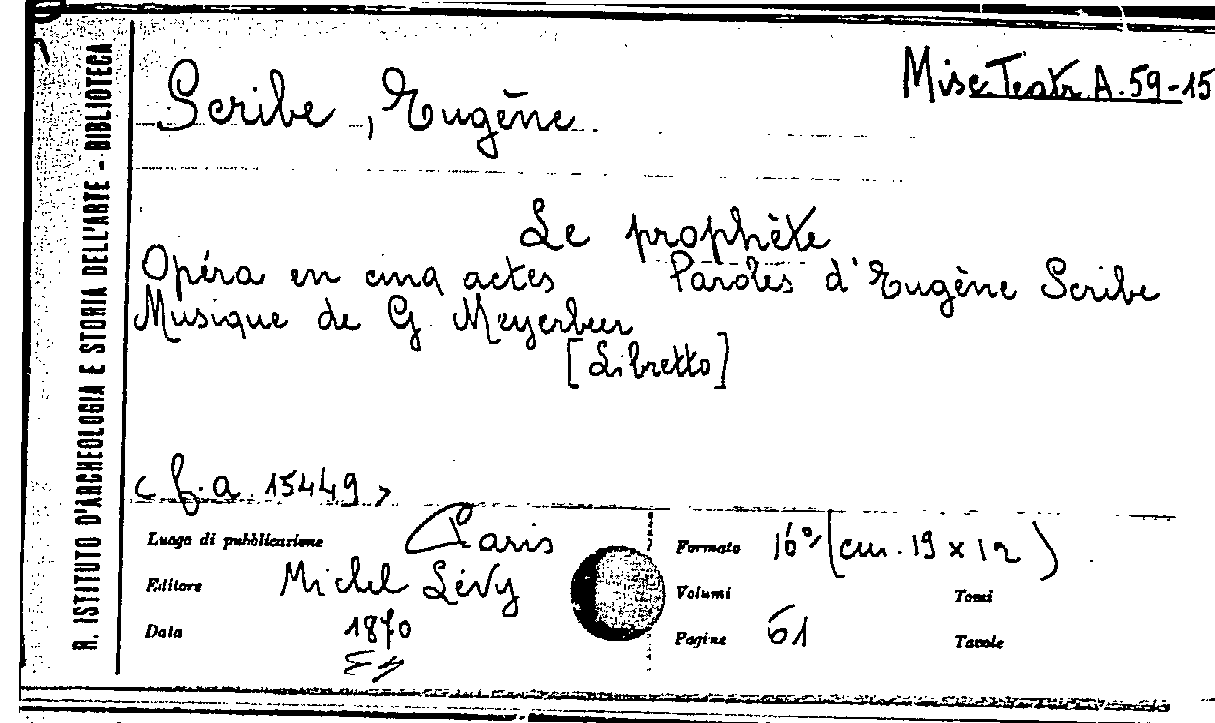 Misc Teatr A. 59-15
Scribe, Eugène.
Le prophète
Opéra en cinq actes Paroles d'Eugène Scribe
Musique de G Meyerbeer
[Libretto]
< f. a. 15449 >
Luogo di pubblicazione Paris
Editore Michel Lévy
Data 1870
Formato 16° (cm. 19 x 12)
Volumi Tomi
Pagine 61 Tavole
R. ISTITUTO D'ARCHEOLOGIA E STORIA DELL'ARTE - BIBLIOTECA